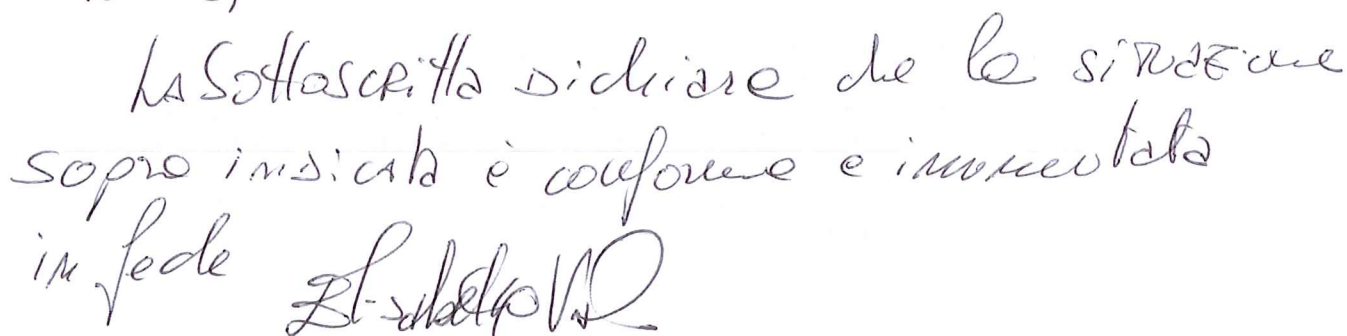 La Sottoscritta Dichiara che la situazione
sopra indicata è conforme e immutata
in fede